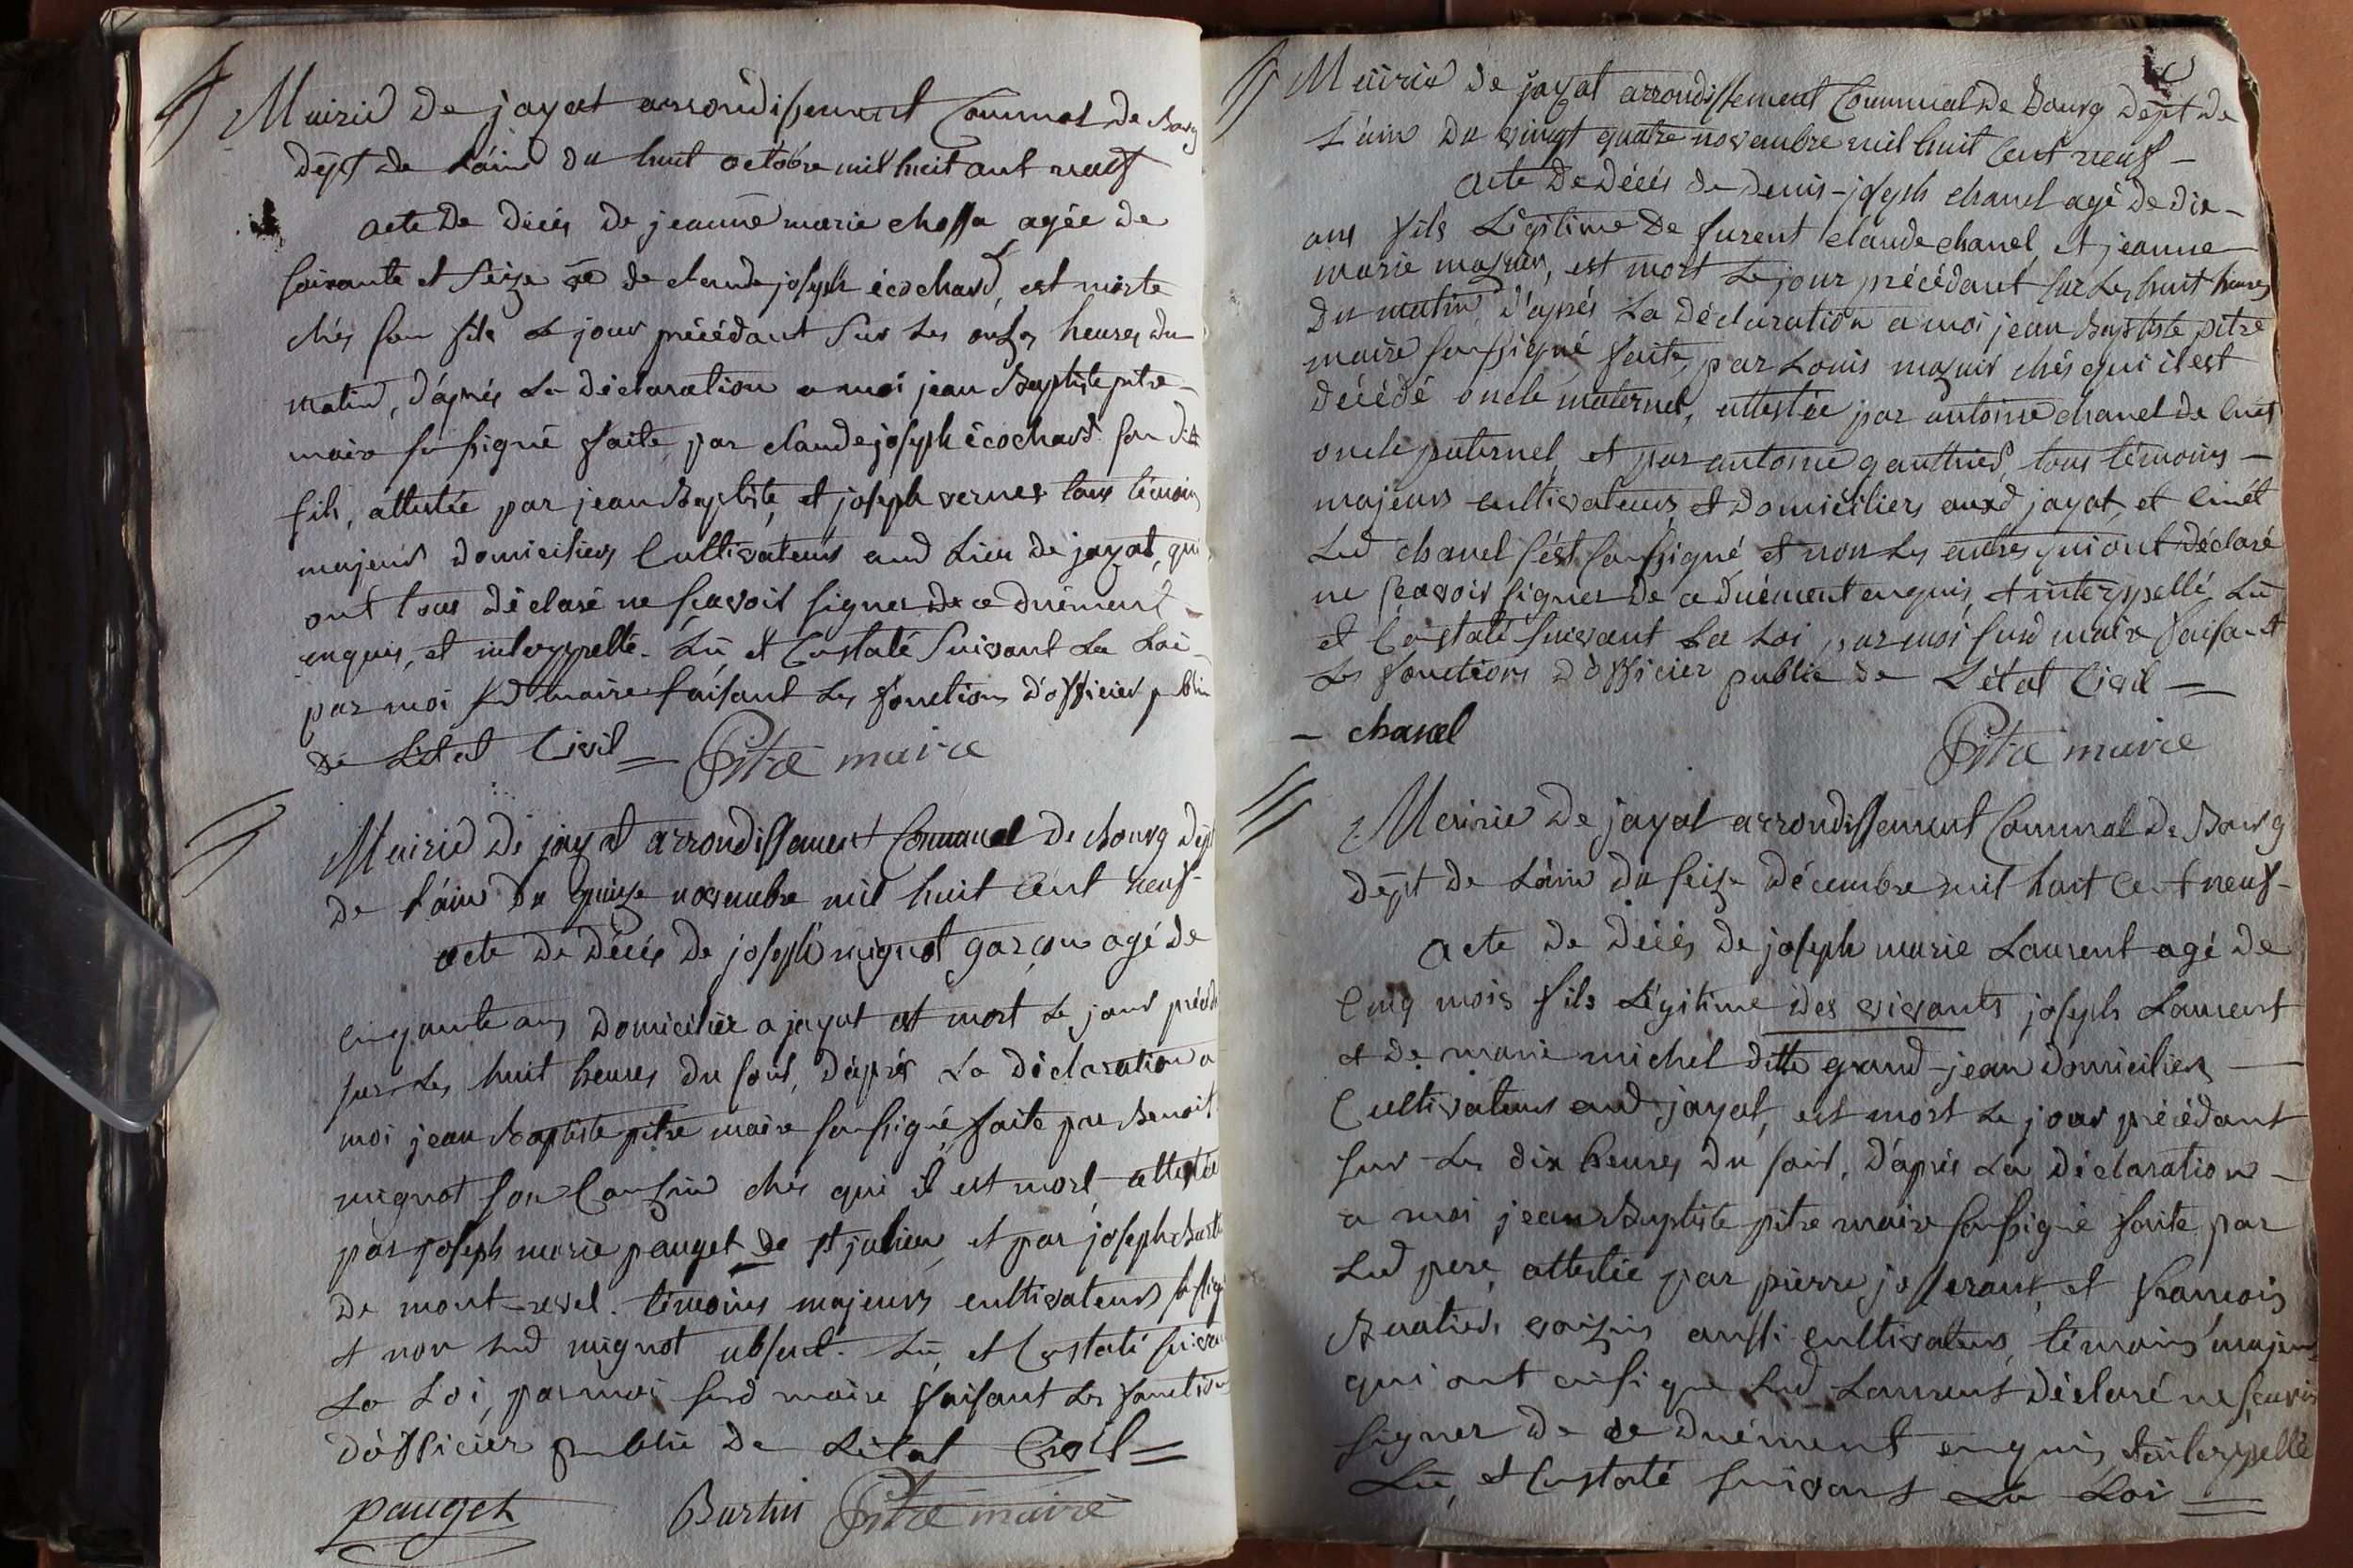 Mairie de jayat arrondissement Communal de Bourg
dépt de Láin du huit octobre mil huit cent neuf
acte de décés de jeanne marie chossa agée de
soixante et seize ve de claude joseph écochard, est morte
chés son fils Le jour précédant sur Les onze heures du
matin, d'aprés La déclaration a moi jean Baptiste pitre
maire soussigné faite, par claude joseph écochard son dit
fils, attestée par jean Baptiste, et joseph vernes tous témoins
majeurs domiciliers Cultivateurs aud Lieu de jayat, qui
ont tous déclaré ne sçavoir signer de ce duement
enquis, et interppellé. Lu et Constaté Suivant La Loi
par moi sud maire faisant Les fonctions d'officier public
de Létat Civil = Pitre maire
Mairie de jayat arrondissement Communal de Bourg dépt
de l'áin du quinze novembre mil huit Cent neuf
acte de décés de joseph mignot garçon agé de
cinquante ans domicilié a jayat est mort Le jour précéd
sur Les huit heures du soir, d'aprés La déclaration a
moi jean Baptiste pitre maire soussigné, faite par Benoit
mignot son Couzin chés qui il est mort attestée
par joseph marie pauget de st julien, et par joseph
de mont-revel. témoins majeurs cultivateurs
et non Led mignot absent. Lu, et Constaté suivant
La Loi, par moi sud maire faisant Les fonctions
d'officier public de Létat Civil =
pauget Burtin Pitre maire
Mairie de jayat arrondissement Communal de Bourg dépt de
L'ain du vingt quatre novembre mil huit Cent neuf –
acte de décés de denis-joseph chanel agé de dix –
ans fils Légitime de furent claude chanel, et jeanne
marie mazuir, est mort Le jour précédant sur Les huit heures
du matin, d'aprés La déclaration a moi jean Baptiste pitre
maire soussigné faite, par Louis mazuir chés qui il est
décédé oncle maternel, attestée par antoine chanel de
oncle paternel, et par antoine gauthier, tous témoins –
majeurs cultivateurs, et domiciliers auxd jayat, et
Led chanel s'ést soussigné, et non Les autres qui ont déclaré
ne sçavoir signer de ce duement enquis, et interppellé, Lu
et Constaté suivant La Loi, par moi sud maire faisant
Les fonctions d'officier public de L'état Civil =
– chanel
Pitre maire
Mairie de jayat arrondissement Communal de Bourg
dépt de Láin du seize décembre mil huit Cent neuf –
acte de décés de joseph marie Laurent agé de
Cinq mois fils Légitime des vivants joseph Laurent
et de marie michel ditte grand-jean domiciliers –
Cultivateurs aud jayat, est mort Le jour précédant
sur Les dix heures du soir, d'aprés La déclaration –
a moi jean Baptiste pitre maire soussigné faite par
Led pere, attestée par pierre josserant, et francois
voizins aussi cultivateurs, témoins majeurs
qui ont ainsi que Led Laurent déclaré ne sçavoir
signer de ce duement enquis, et interppellé
Lu, et Constaté suivant La Loi =